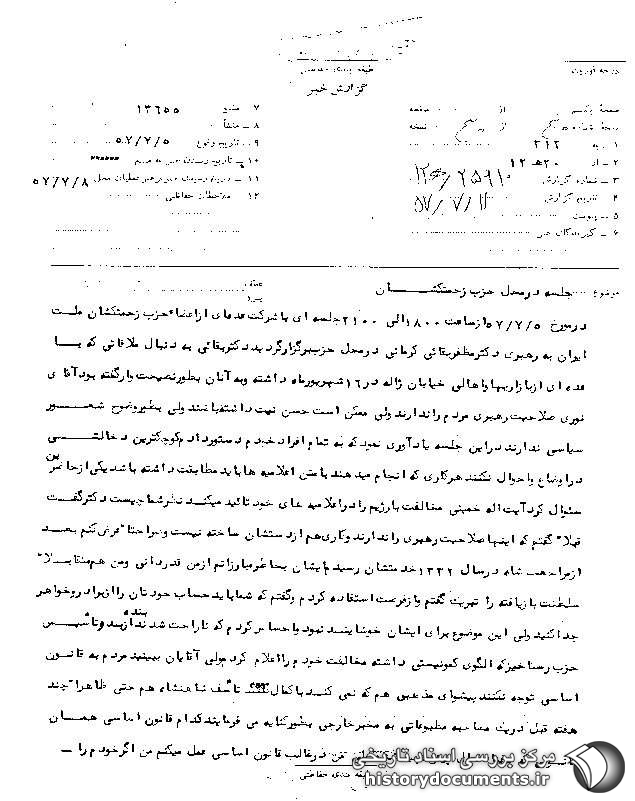 طبقه بندی حفاظتی
گزارش خبر
درجه فوریت
صفحه یکم از صفحه
۱ - به ۳۱۲
۲ - از ۲۰هـ ۱۲
۳ - شماره گزارش
۴ - تاریخ گزارش
۵ - پیوست
۶ - گیرندگان خبر
۷ - منبع ۱۳۶۵۵
۸ - منشأ
۹ - تاریخ وقوع ۵۷/۷/۵
۱۰ - تاریخ رسیدن خبر به منبع ******
۱۱ - تاریخ رسیدن خبر به رهبر عملیات محل ۵۷/۷/۸
۱۲ - ملاحظات حفاظتی
موضوع : جلسه در محل حزب زحمتکشان
عطف
پیرو
در مورخ ۵۷/۷/۵ از ساعت ۱۸۰۰ الی ۲۱۰۰ جلسه ای با شرکت عده ای از اعضاء حزب زحمتکشان ملت
ایران به رهبری دکتر مظفر بقائی کرمانی در محل حزب برگزار گردید دکتر بقائی به دنبال ملاقاتی که با
عده ای از بازاریها و اهالی خیابان ژاله در ۱۶ شهریور ماه داشته و به آنان بطور نصیحت وار گفته بود آقای
نوری صلاحیت رهبری مردم را ندارند ولی ممکن است حسن نیت داشته باشند ولی بطور وضوح شعور
سیاسی ندارند در این جلسه یادآوری نمود که به تمام افراد خود هم دستور دادم کوچکترین دخالتی
در اوضاع و احوال نکنند هر کاری که انجام میدهند با متن اعلامیه ها باید مطابقت داشته باشد یکی از حاضرین
سئوال کرد آیت اله خمینی مخالفت با رژیم را در اعلامیه های خود تائید میکند نظر شما چیست دکتر گفت
قبلا" گفتم که اینها صلاحیت رهبری را ندارند و کاری هم از دستشان ساخته نیست و صراحتا" عرض کنم بعد
از مراجعت شاه در سال ۱۳۳۲ خدمتشان رسیدم ایشان بخاطر مبارزاتم از من قدردانی و من هم متقابلا"
سلطنت بازیافته را تبریک گفتم و از فرصت استفاده کردم و گفتم که شما باید حساب خودتان را از برادر و خواهر
جدا کنید ولی این موضوع برای ایشان خوشایند نبود و احساس کردم که ناراحت شدند از بنده و تأسیس
حزب رستاخیز که الگوی کمونیستی داشته مخالفت خودم را اعلام کردم ولی آقایان ببینید مردم به قانون
اساسی توجه نکنند پیشوای مذهبی هم که نمی کنند با کمال تأسف شاهنشاه هم حتی ظاهرا" چند
هفته قبل در یک مصاحبه مطبوعاتی به مخبر خارجی بطور کنایه می فرمایند کدام قانون اساسی همان
در قالب قانون اساسی عمل میکنم من اگر خودم را -
طبقه بندی حفاظتی
مرکز بررسی اسناد تاریخی
historydocuments.ir